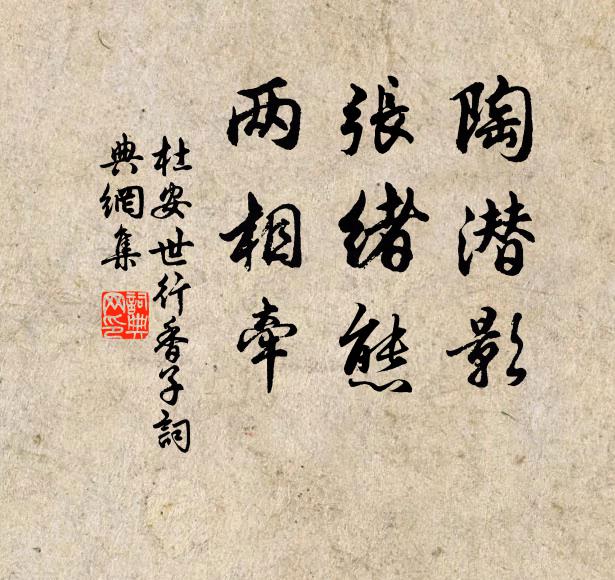 陶潜影
張緒態
两相牽
杜安世行香子詞
典網集
詞典
网印